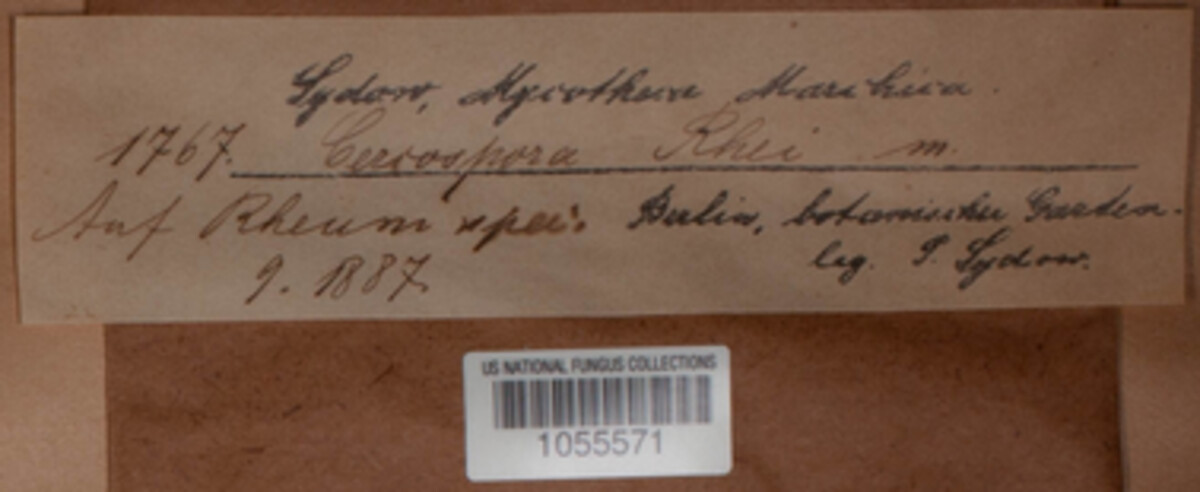 Sydow, Mycotheca Marchica.
1767. Cercospora Rhei m.
Auf Rheum spec. Berlin, botanischer Garten.
9. 1887. leg. P. Sydow.
US NATIONAL FUNGUS COLLECTIONS
1055571